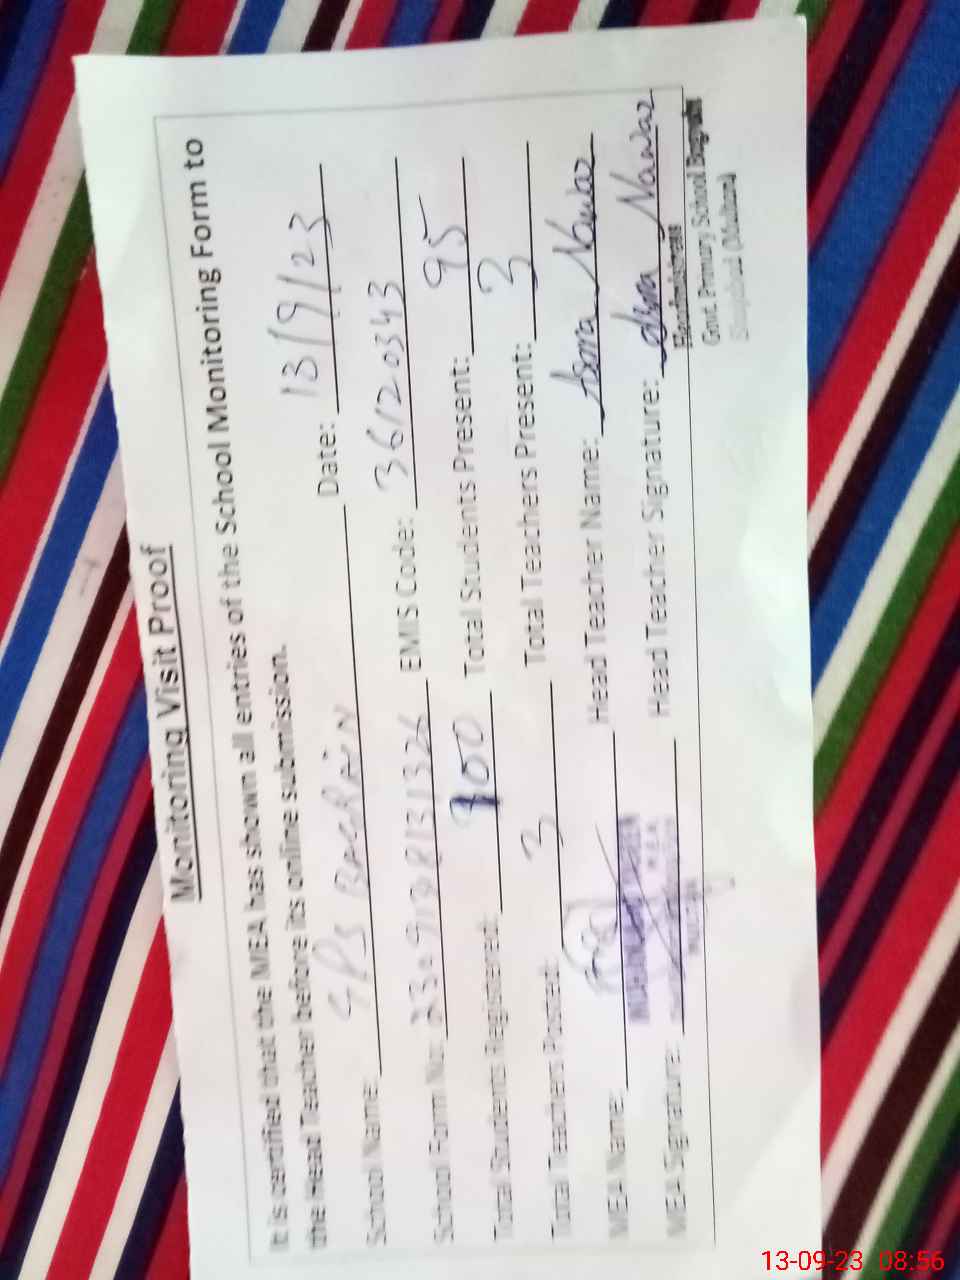 Monitoring Visit Proof
It is certified that the MEA has shown all entries of the School Monitoring Form to
the Head Teacher before its online submission.
School Name: GPS Date: 13/9/23
School Form No: EMIS Code: 36120343
Total Students Registered: 100 Total Students Present: 95
Total Teachers Posted: 3 Total Teachers Present: 3
MEA Name: Head Teacher Name: Asma Nawaz
MEA Signature: Head Teacher Signature: Asma Nawaz
Headmistress
Govt. Primary School
(Multan)
MULTAN
13-09-23 08:56